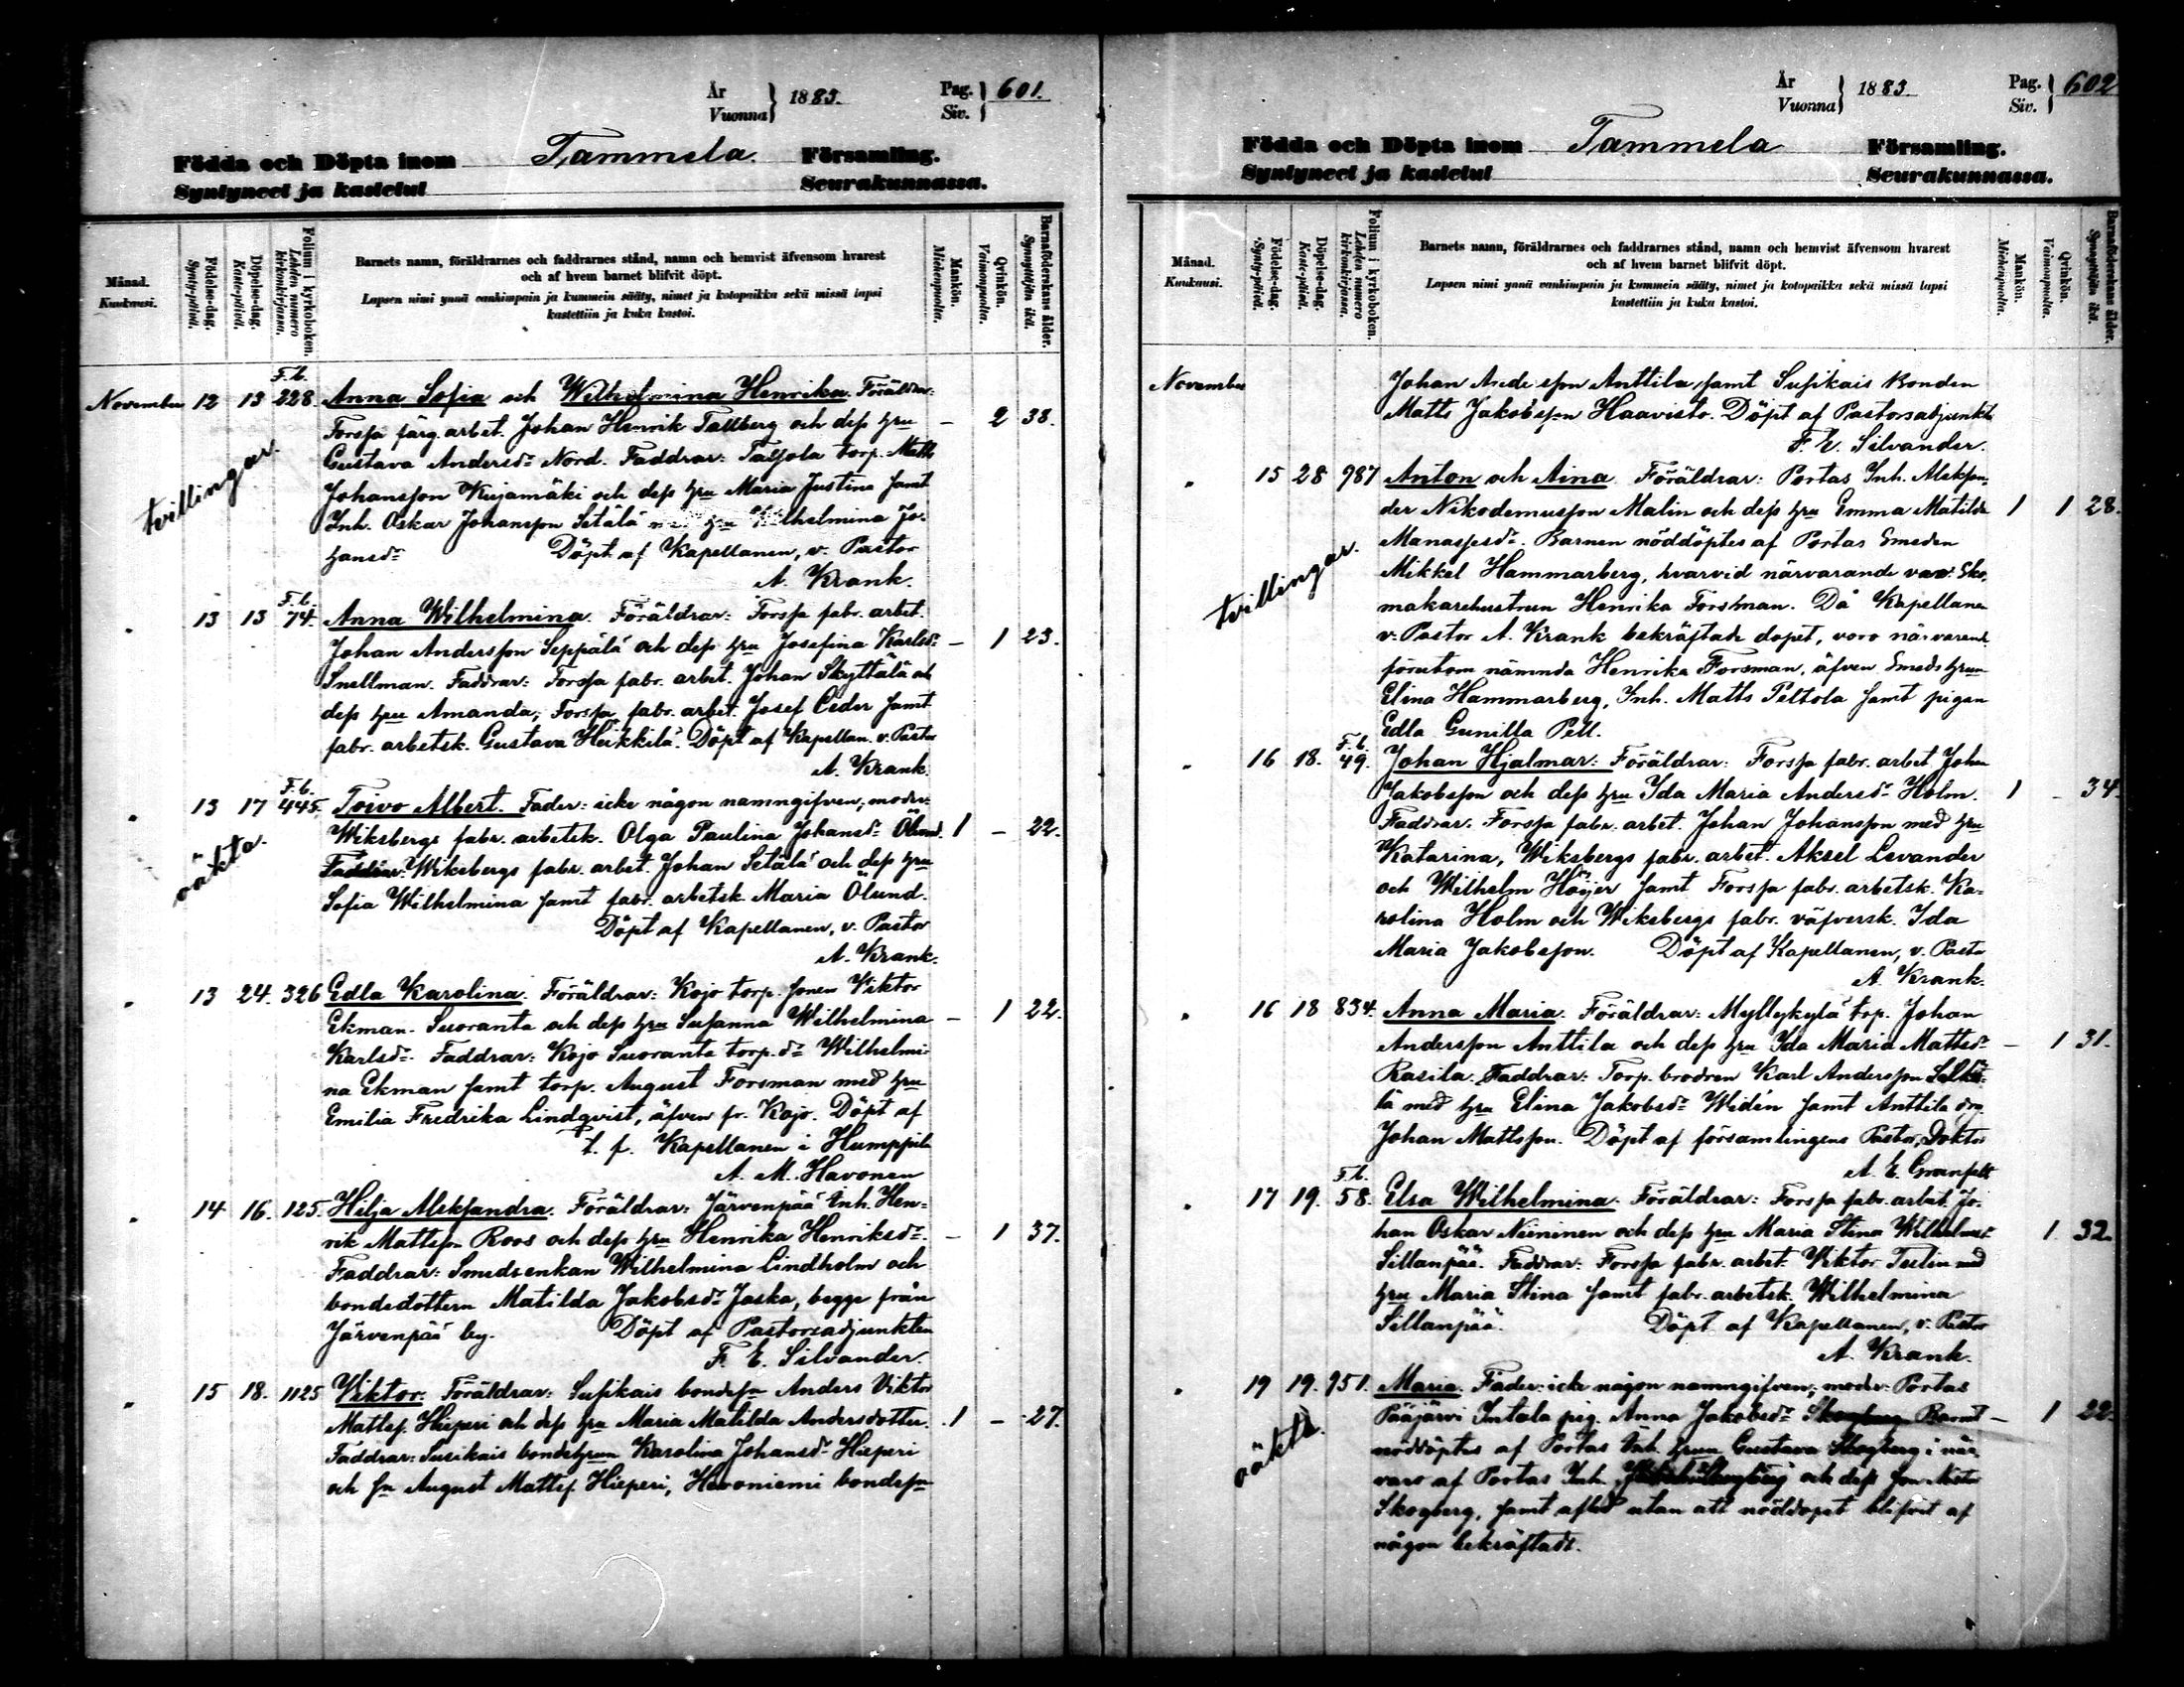 År
Vuonna } 1883.
Pag.
Siv. } 601.
Födda och Döpta inom Tammela. Församling.
Syntyneet ja kastetut Seurakunnassa.
Månad.
Kuukausi.
Födelse-dag.
Synty-päivä.
Döpelse-dag.
Kaste-päivä.
Folium i kyrkoboken.
Lehden numero kirkonkirjassa.
Barnets namn, föräldrarnes och faddrarnes stånd, namn och hemvist äfvensom hvarest
och af hvem barnet blifvit döpt.
Lapsen nimi ynnä vanhimpain ja kummein sääty, nimet ja kotopaikka sekä missä lapsi
kastettiin ja kuka kastoi.
Mankön.
Miehenpuolta.
Qvinkön.
Vaimonpuolta.
Barnaföderskans ålder.
Synnyttäjän ikä.
F.b.
November 12 13 228. Anna Sofia och Wilhelmina Henrika. Föräldrar:
Forssa färg. arbet. Johan Henrik Tallberg och dess hru — 2 38.
Gustava Andersdr Nord. Faddrar: Taljola torp. Matts
tvillingar.
Johansson Kujamäki och dess hru Maria Justina samt
Inh. Oskar Johansson Setälä med hru Wilhelmina Jo-
hansdr Döpt af Kapellanen, v. Pastor
A. Krank.
F.b.
" 13 13 74. Anna Wilhelmina. Föräldrar: Forssa fabr. arbet.
Johan Andersson Seppälä och dess hru Josefina Karlsdr — 1 23.
Snellman. Faddrar: Forssa fabr. arbet. Johan Skyttälä och
dess hru Amanda, Forssa fabr. arbet. Josef Ceder samt
fabr. arbetsk. Gustava Heikkilä. Döpt af Kapellan. v. Pastor
A. Krank.
F.b.
" 13 17 445. Toivo Albert. Fader: icke någon namngifven; moder:
Wiksbergs fabr. arbetsk. Olga Paulina Johansdr Ölund. 1 — 22.
oäkta.
Faddrar: Wiksbergs fabr. arbet. Johan Setälä och dess hru
Sofia Wilhelmina samt fabr. arbetsk. Maria Ölund.
Döpt af Kapellanen, v. Pastor
A. Krank.
" 13 24. 326 Edla Karolina. Föräldrar: Kojo torp. sonen Viktor
Ekman-Suoranta och dess hru Susanna Wilhelmina — 1 22.
Karlsdr. Faddrar: Kojo Suoranta torp. dr Wilhelmi-
na Ekman samt torp. August Forsman med hru
Emilia Fredrika Lindqvist, äfven fr. Kojo. Döpt af
t. f. Kapellanen i Humppila
A. M. Havonen
" 14 16. 125. Hilja Aleksandra. Föräldrar: Järvenpää Inh. Hen-
rik Mattssn Roos och dess hru Henrika Henriksdr. — 1 37.
Faddrar: Smedsenkan Wilhelmina Lindholm och
bondedottern Matilda Jakobsdr Jaska, begge från
Järvenpää by. Döpt af Pastorsadjunkten
F. E. Silvander.
" 15 18. 1125 Viktor. Föräldrar: Susikais bondesn Anders Viktor
Mattss. Hieperi och dess hru Maria Matilda Andersdotter. 1 — 27.
Faddrar: Susikais bondehrun Karolina Johansdr Hieperi
och sn August Mattss. Hieperi, Havoniemi bondesn
År
Vuonna } 1883.
Pag.
Siv. } 602
Födda och Döpta inom Tammela Församling.
Syntyneet ja kastetut Seurakunnassa.
Månad.
Kuukausi.
Födelse-dag.
Synty-päivä.
Döpelse-dag.
Kaste-päivä.
Folium i kyrkoboken.
Lehden numero kirkonkirjassa.
Barnets namn, föräldrarnes och faddrarnes stånd, namn och hemvist äfvensom hvarest
och af hvem barnet blifvit döpt.
Lapsen nimi ynnä vanhimpain ja kummein sääty, nimet ja kotopaikka sekä missä lapsi
kastettiin ja kuka kastoi.
Mankön.
Miehenpuolta.
Qvinkön.
Vaimonpuolta.
Barnaföderskans ålder.
Synnyttäjän ikä.
November Johan Anttila, samt Susikais Bonden
Matts Jakobsson Haavisto. Döpt af Pastorsadjunkten
F. E. Silvander.
" 15 28 987 Anton och Aina. Föräldrar: Portas Inh. Aleksan-
der Nikodemusson Malin och dess hru Emma Matilda 1 1 28.
Manassesdr. Barnen nöddöptes af Portas Smeden
tvillingar.
Mikkel Hammarberg, hvarvid närvarande var Sko-
makarehustrun Henrika Forsman. Då Kapellanen
v. Pastor A. Krank bekräftade dopet, voro närvarande
förutom nämnda Henrika Forsman, äfven Smedshrun
Elina Hammarberg, Inh. Matts Peltola samt pigan
Edla Gunilla Pell.
F.b.
" 16 18. 49. Johan Hjalmar: Föräldrar: Forssa fabr. arbet Johan
Jakobsson och dess hru Ida Maria Andersdr Holm. 1 — 34.
Faddrar: Forssa fabr. arbet. Johan Johansson med hru
Katarina, Wiksbergs fabr. arbet. Aksel Levander
och Wilhelm Höijer samt Forssa fabr. arbetsk. Ka-
rolina Holm och Wiksbergs fabr. väfversk. Ida
Maria Jakobsson. Döpt af Kapellanen, v. Pastor
A. Krank.
" 16 18 834. Anna Maria. Föräldrar: Myllykylä torp. Johan
Andersson Anttila och dess hru Ida Maria Mattsdr — 1 31.
Rasila. Faddrar: Torp. brodren Karl Andersson
lä med hru Elina Jakobsdr Widén samt Anttila drg
Johan Mattsson. Döpt af församlingens Pastor, Doktor
A. E. Granfelt
F.b.
" 17 19. 58. Elsa Wilhelmina. Föräldrar: Forssa fabr. arbet. Jo-
han Oskar Nieminen och dess hru Maria Stina Wilhelmsdr 1 32.
Sillanpää. Faddrar: Forssa fabr. arbet. Viktor Tuulin med
hru Maria Stina samt fabr. arbetsk. Wilhelmina
Sillanpää. Döpt af Kapellanen, v. Pastor
A. Krank.
" 19 19. 951. Maria. Fader: icke någon namngifven; moder: Portas
Pääjärvi Intala pig. Anna Jakobsdr Skogberg Barnet — 1 22.
oäkta.
nöddöptes af Portas Inh. hrun Gustava Skogberg i när-
varo af Portas Inh. Skogberg och dess son
Skogberg, samt afled utan att nöddopet blifvit af
någon bekräftadt.